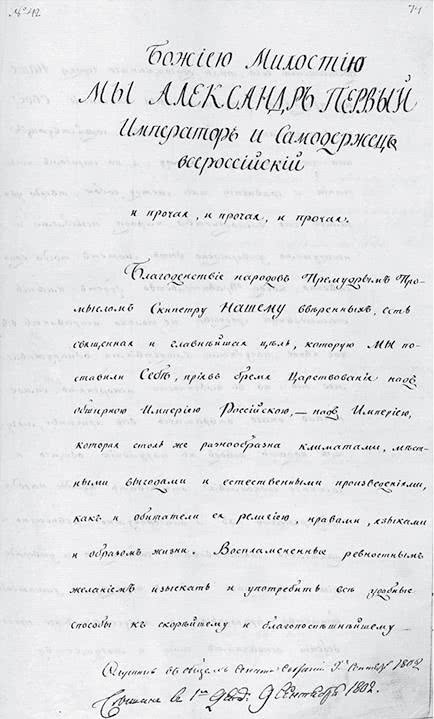 № 42
71
Божіею Милостію
МЫ АЛЕКСАНДРЪ ПЕРВЫЙ
Императоръ и Самодержецъ
всероссійскій
и прочая, и прочая, и прочая.
Благоденствіе народовъ Премудрымъ Про-
мысломъ Скипетру НАШЕМУ ввѣренныхъ, есть
священная и главнѣйшая цѣль, которую МЫ по-
ставили Себѣ, пріявъ бремя Царствованія надъ
обширною Имперіею Россійскою, — надъ Имперіею,
которая столь же разнообразна климатами, мѣст-
ными выгодами и естественными произведеніями,
какъ и обитатели ея религіею, нравами, языками
и образомъ жизни. Воспламененные ревностнымъ
желаніемъ изыскать и употребить всѣ удобные
способы къ скорѣйшему и благопоспѣшнѣйшему
въ общемъ собраніи 9го Сентября 1802
въ 1мъ 9 Сентября 1802.